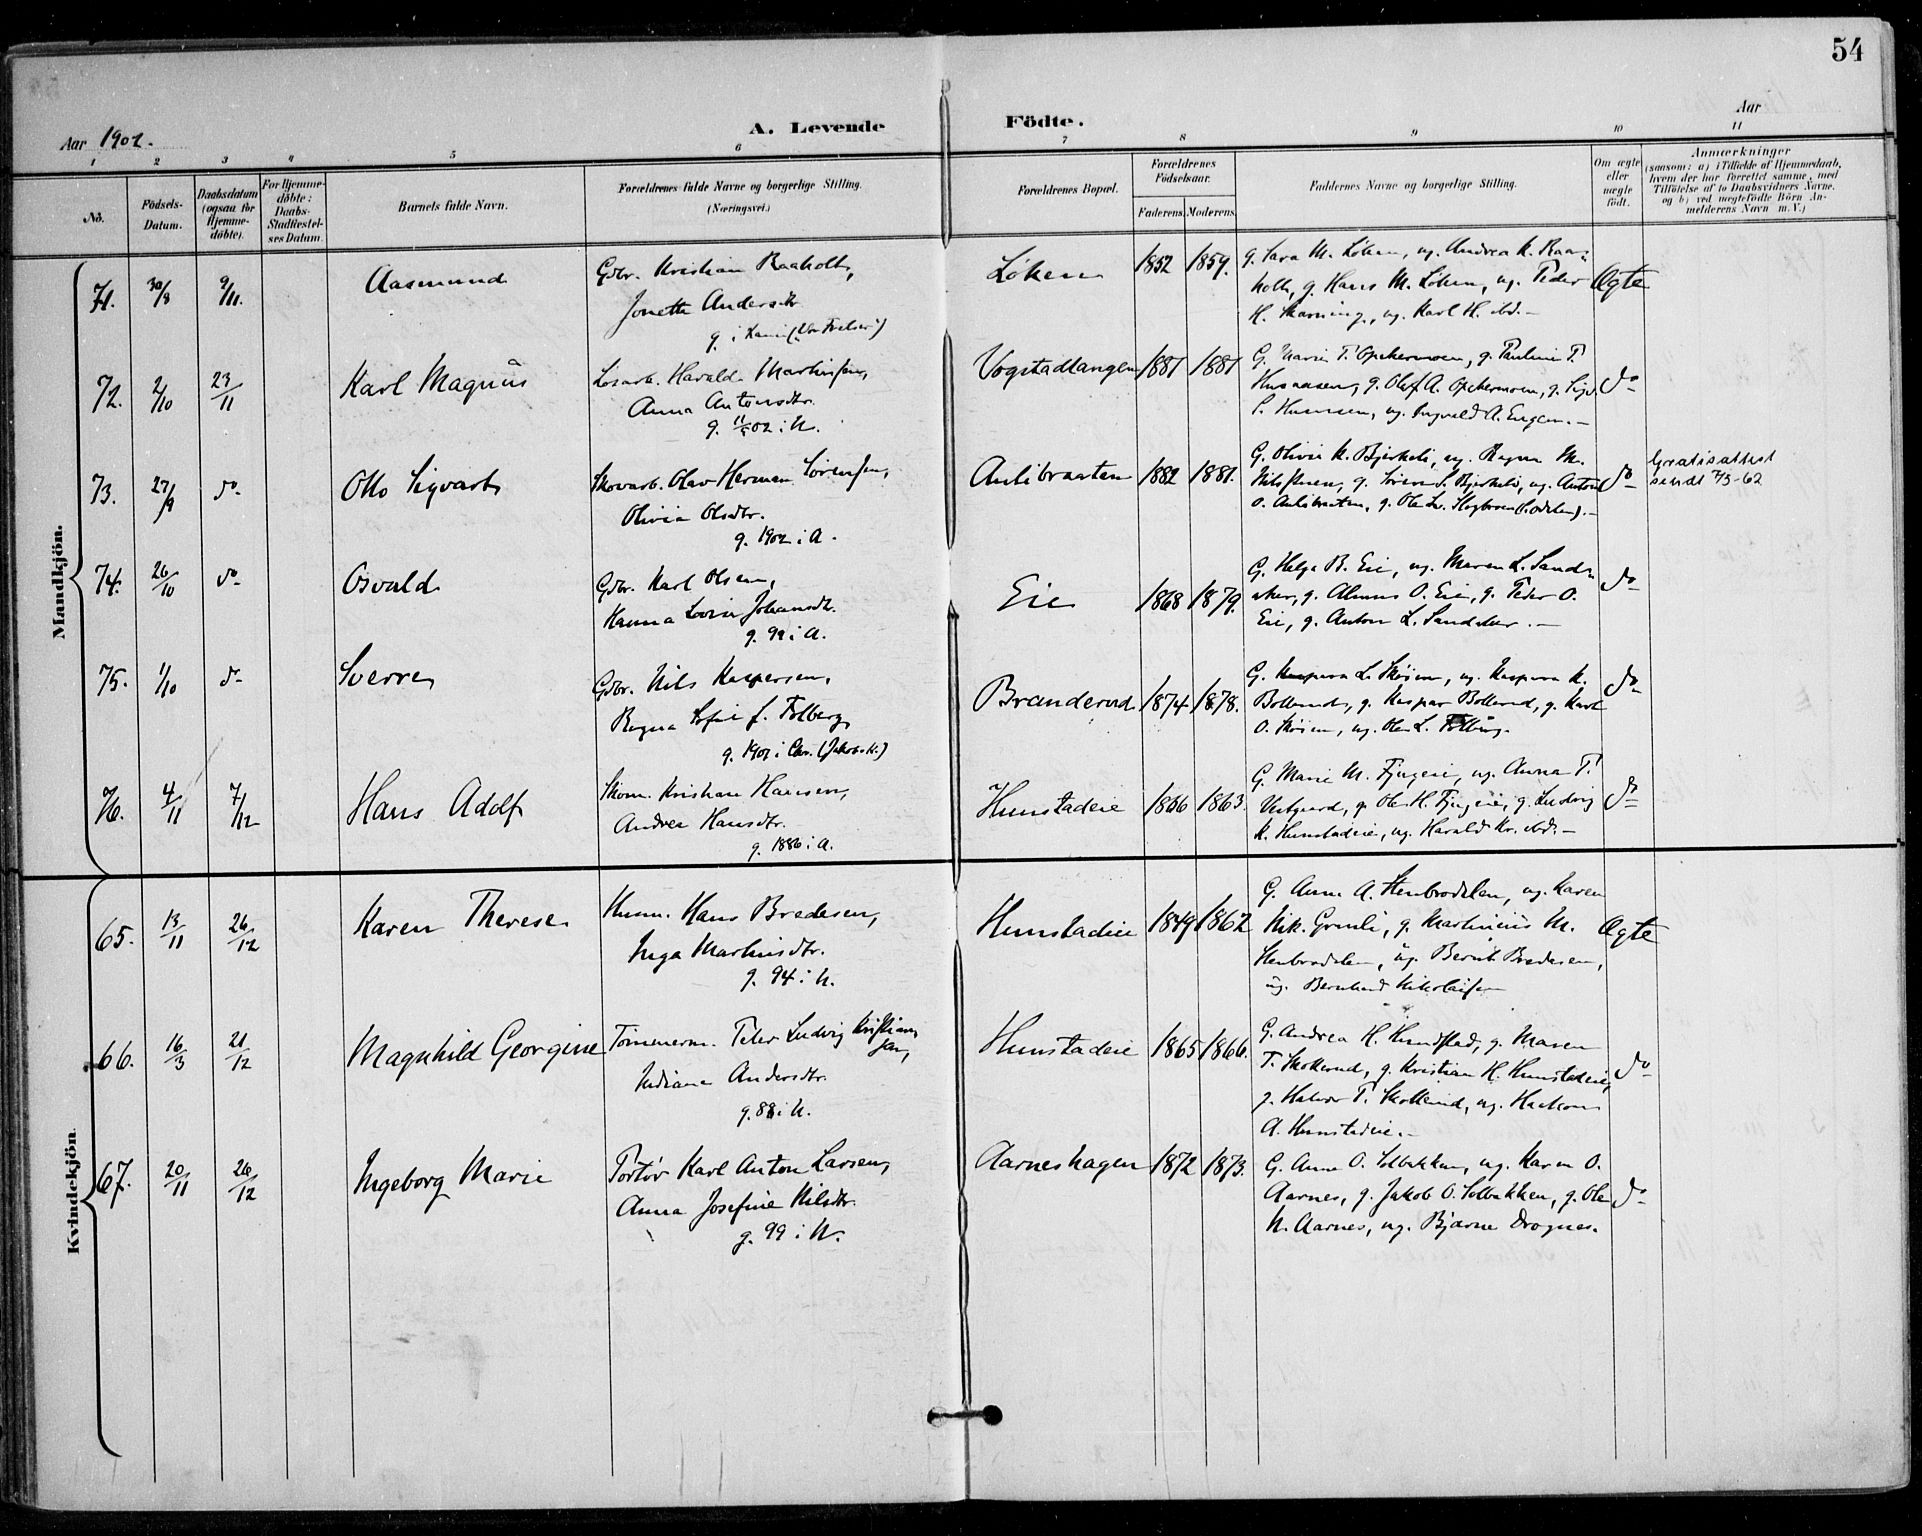 54
Aar 1902.
A. Levende Födte.
Aar
1 2 3 4 5 6 7 8 9 10 11
No.
Födsels-Datum.
Daabsdatum (ogsaa for Hjemmedøbte).
For Hjemmedøbte: Daabs-Stadfestelses Datum.
Barnets fulde Navn.
Forældrenes fulde Navne og borgerlige Stilling.
(Næringsvei.)
Forældrenes Bopæl.
Forældrenes Födselsaar.
Faderens. Moderens.
Faddernes Navne og borgerlige Stilling.
Om ægte eller uægte født.
Anmærkninger
(saasom: a) i Tilfælde af Hjemmedaab, hvem der har forrettet samme, med Tilføielse af to Daabsvidners Navne, og b) ved uægtefødte Börn Anmelderens Navn m.V.)
Mandkjön.
71. 30/8 9/11. Aasmund Gdbr. Kristian Raaholt, Løken 1852 1859. g. Sara M. Løken, ug. Andrea K. Raa-
Jonette Andersdtr. holt, g. Hans M. Løken, ug. Peder Ægte
H. Skarning, ug. Karl H. ibd.
72. 2/10 23/11 Karl Magnus Løsarb. Harald Martinsen, Vogstadtangen 1881 1881 G. Marie T. Opckermoen, g. Pauline T.
Anna Antonsdtr. g. Olaf A. Opckermoen, g. do
g. 11/5 02 i N. ug. Ingvald A. Engen.
73. 27/9 do Otto Sigvart Skovarb. Olav Herman Sørensen, Aulibraaten 1882 1881. G. Olivie K. Bjerkeli, ug. Ragna M. Gratisattest
Olivia Olsdtr. Nilssen, g. Søren S. Bjerkeli, ug. Anton do sendt 7/3-62
g. 1902 i A. O. Aulibraaten, g. Ole
74. 26/10 do Osvald Gdbr. Karl Olsen, Eie 1868 1879. G. Helga B. Eie, ug. Maren L. Sand- do
Hanna Lovise Johansdtr. aker, g. O. Eie, g. Peder O.
g. 99 i A. Eie, g. Anton L. Sandaker.
75. 1/10 do Sverre Gdbr. Nils Kaspersen, Branderud 1874 1878. G. Kaspara L. Skøien, ug. Kaspara K. do
Ragna Sofie f. Folberg, Bollerud, g. Kaspar Bollerud, g. Karl
g. 1901 i Chr. (Jakobs K.) O. Skøien, ug. Ole L. Folberg.
76. 4/11 7/12 Hans Adolf Skom. Kristian Hansen, Hunstadeie 1866 1863. G. Marie M. Fjugeie, ug. Anna T. do
Andrea Hansdtr. g. Ole H. Fjugeie, g. Ludvig
g. 1886 i A. K. Hunstadeie, ug. Harald Kr. ibd.
Kvindekjön
65. 13/11 26/12 Karen Therese Husm. Hans Bredesen, Hunstadeie 1849 1862 G. Anne A. Stenbrodalen, ug. Karen
Inga Martinsdtr. Nik. Grunli, g. Martinius M. Ægte
g. 94 i N. Stenbrodalen, ug. Bernt Bredesen,
ug. Bernhard Nikolaisen
66. 16/3 21/12 Magnhild Georgine Tømmerm. Peter Ludvig Kristiansen, Hunstadeie 1865 1866. G. Andrea H. Hunstad, g. Maren
Indiane Andersdtr. T. Skollerud, g. Kristian H. Hunstadeie, do
g. 88 i N. g. Halvor T. Skollerud, ug. Haakon
A. Hunstadeie.
67. 20/11 26/12 Ingeborg Marie Portør Karl Anton Larsen, Aarneshagen 1872 1873. G. Anne O. Solbakken, ug. Karen O.
Anna Josefine Nilsdtr. Aarnes, g. Jakob O. Solbakken, g. Ole do
g. 99 i N. N. Aarnes, ug. Bjarne Drognes.